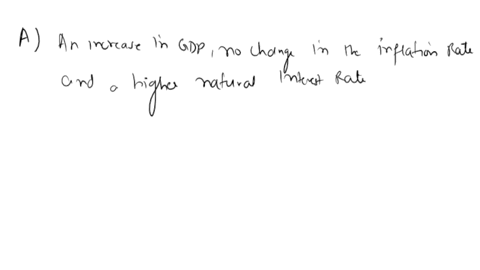 A) An increase in GDP, no change in the inflation Rate
and a higher natural Interest Rate